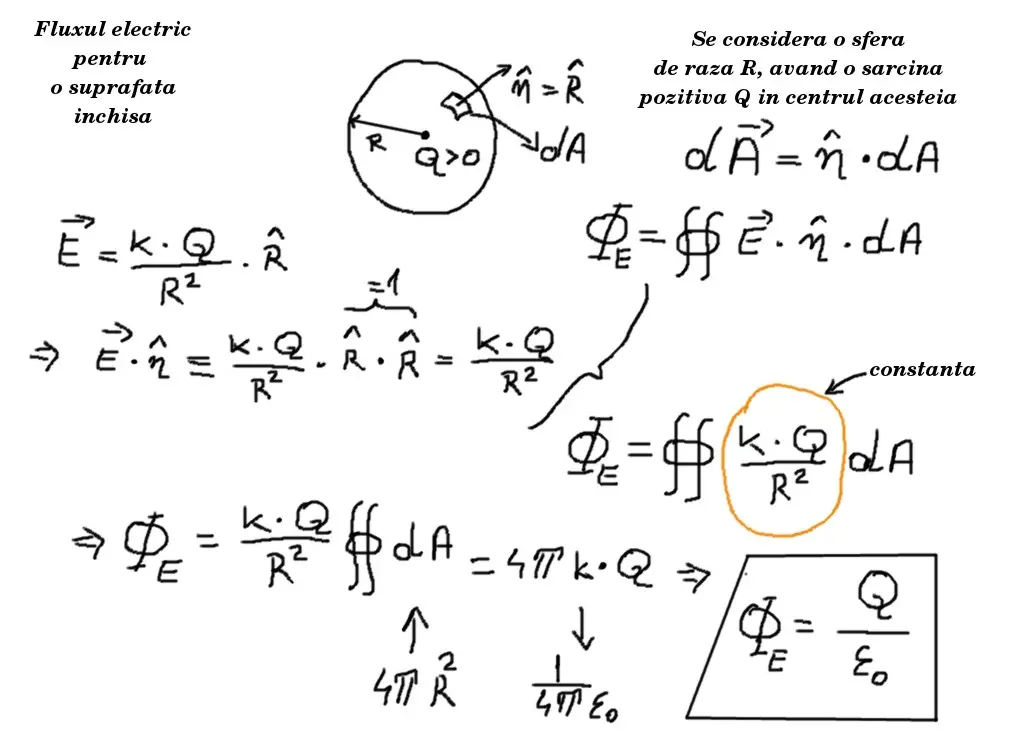 Fluxul electric
pentru
o suprafata
inchisa
Se considera o sfera
de raza R, avand o sarcina
pozitiva Q in centrul acesteia
n̂ = R̂
R
Q>0
dA
dA⃗ = n̂ · dA
E⃗ = k·Q/R² · R̂
Φ_E = ∯ E⃗ · n̂ · dA
=1
⇒ E⃗ · n̂ = k·Q/R² · R̂ · R̂ = k·Q/R²
constanta
Φ_E = ∯ k·Q/R² dA
⇒ Φ_E = k·Q/R² ∯ dA = 4πk·Q ⇒
↑ 4πR²
↓ 1/4πε₀
Φ_E = Q/ε₀